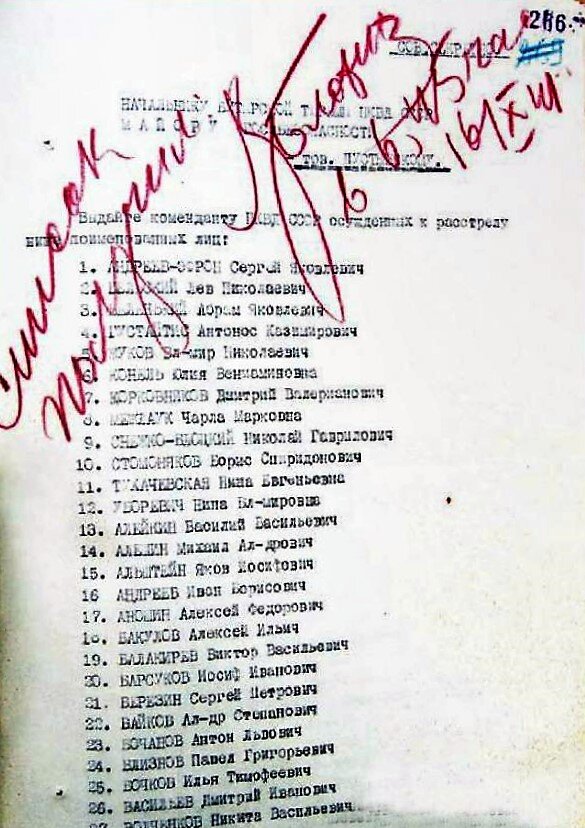 266.
СОВ.СЕКРЕТНО
НАЧАЛЬНИКУ БУТЫРСКОЙ ТЮРЬМЫ НКВД СССР
МАЙОРУ ГОСБЕЗОПАСНОСТИ
ТОВ. ПУСТЫНСКОМУ.
Список
подлинник
16/XIII
Выдайте коменданту НКВД СССР осужденных к расстрелу
ниже поименованных лиц:
1. АНДРЕЕВ-ЭФРОН Сергей Яковлевич
2. Лев Николаевич
3. БЕЛЕНЬКИЙ Абрам Яковлевич
4. ГУСТАЙТИС Антонос Казимирович
5. ЖУКОВ Вл-мир Николаевич
6. КОНЕЛЬ Юлия Вениаминовна
7. КОРКОВНИКОВ Дмитрий Валерианович
8. МЕЖЛАУК Чарла Марковна
9. СНЕЖКО-БЛОЦКИЙ Николай Гаврилович
10. СТОМОНЯКОВ Борис Спиридонович
11. ТУХАЧЕВСКАЯ Нина Евгеньевна
12. УБОРЕВИЧ Нина Вл-мировна
13. АЛЕЙКИН Василий Васильевич
14. АЛЕШИН Михаил Ал-дрович
15. АЛЬШТЕЙН Яков Иосифович
16 АНДРЕЕВ Иван Борисович
17. АНОШИН Алексей Федорович
18. БАКУЛОВ Алексей Ильич
19. БАЛАКИРЕВ Виктор Васильевич
20. БАРСУКОВ Иосиф Иванович
21. БЕРЕЗИН Сергей Петрович
22. БАЙКОВ Ал-др Степанович
23. БОЧАНОВ Антон Львович
24. БЛИЗНОВ Павел Григорьевич
25. БОЧКОВ Илья Тимофеевич
26. ВАСИЛЬЕВ Дмитрий Иванович
27. ВОДЧЕНКОВ Никита Васильевич